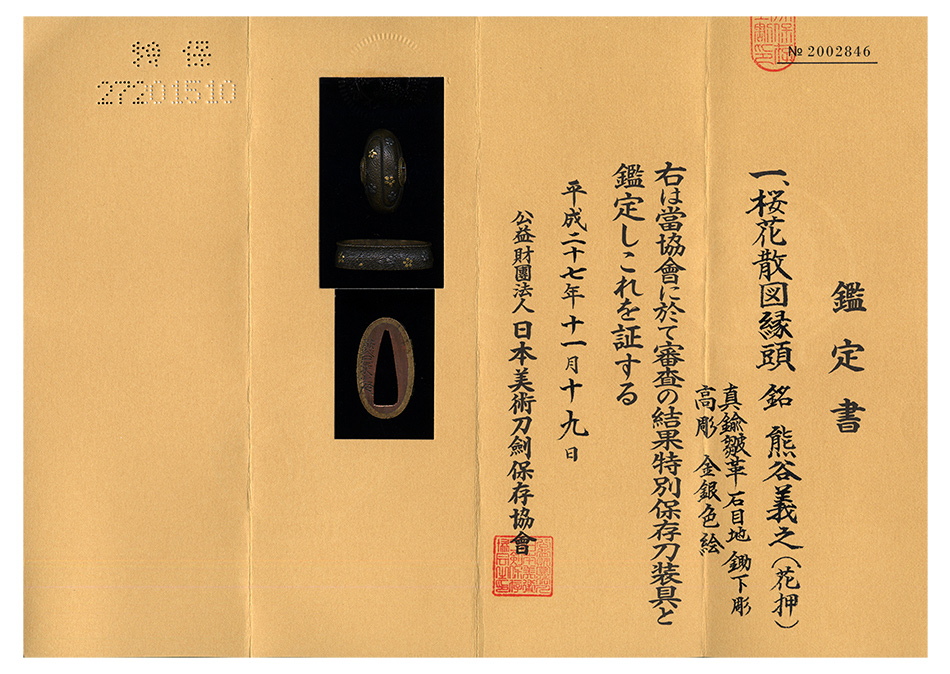 № 2002846
鑑定書
一、桜花散図縁頭 銘 熊谷義之(花押)
真鍮皺革石目地 鋤下彫
高彫 金銀色絵
右は當協會に於て審査の結果特別保存刀装具と
鑑定しこれを証する
平成二十七年十一月十九日
公益財團法人 日本美術刀劍保存協會
特保
27201510